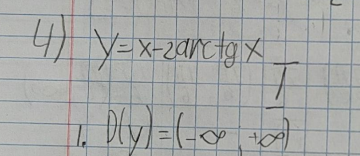 4) y=x-2arctgx
1. D(y)=(-∞, +∞)